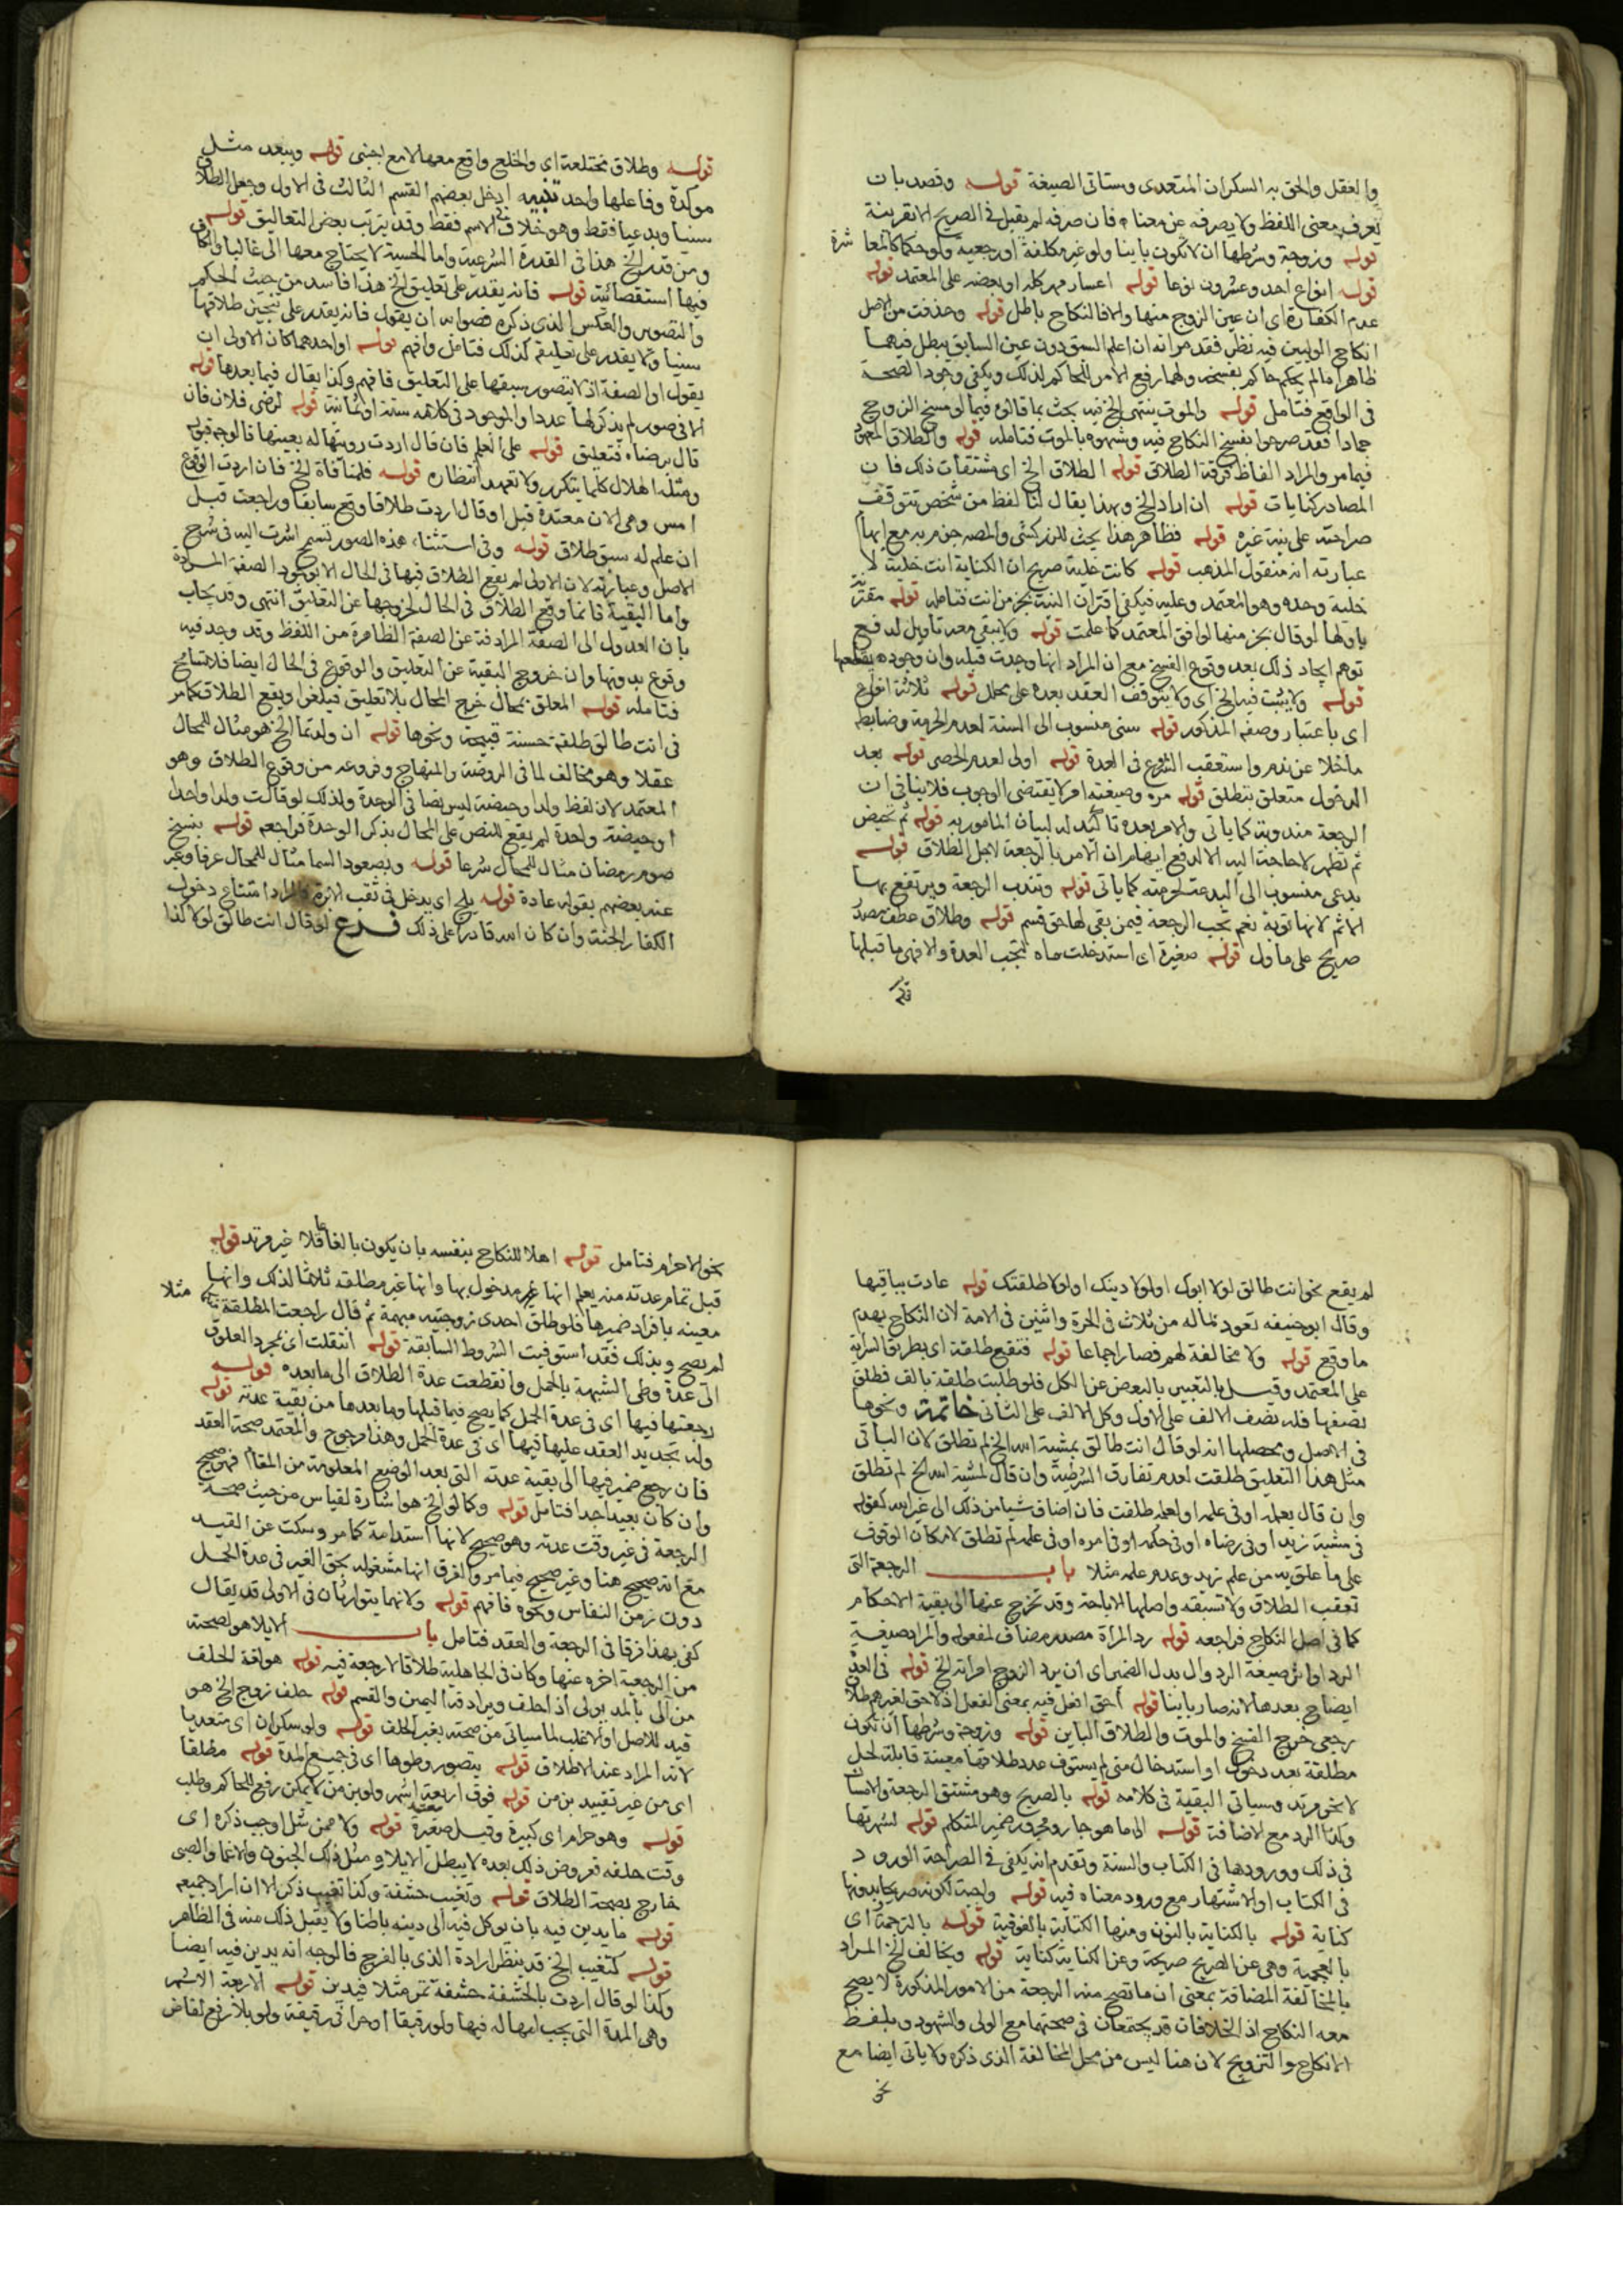 والعقل والحق به السكران المتعدى وستاتى الصيغة قوله وقصد بان
يعرف معنى اللفظ ولا يصرفه عن معناه فان صرفه لم يقبل فى الصريح الا بقرينة
قوله وزوجة وشرطها ان لا تكون باينا ولو غير مكلفة او رجعية ولو حكما كالمعا شرة
قوله انواع احد وعشرون نوعا قوله اعسار مهر كله او بعضه على المعتمد قوله
عدم الكفارة اى ان عين الزوج منها والا فالنكاح باطل قوله وحذفت من الاصل
انكاح الوليين فيه نظر فقد مر انه ان اعلم السبق دون عين السابق يبطل فيهما
ظاهرا ما لم يحكم حاكم بفسخه ولهما رفع الامر للحاكم لذلك ويكفى وجود الصحة
فى الواقع فتامل قوله والموت ينتهى الخ فيه بحث بما قالوه فيما لو مسخ الزوج
جمادا فقد صرحوا بفسخ النكاح فيه وشبهوه بالموت فتامله قوله والطلاق المعهود
فيما مر والمراد الفاظ فرقة الطلاق قوله الطلاق الخ اى مشتقات ذلك فان
المصادر كنايات قوله ان اراد الخ وبهذا يقال لنا لفظ من شخص تتوقف
صراحته على نية غيره قوله فظاهر هذا بحث للزركشى والمصه جزم به مع ايهام
عبارته انه منقول المذهب قوله كانت خلية صريح ان الكناية انت خلية لا
خلية وحده وهو المعتمد وعليه فيكفى اقتران النية بجزء من انت فتامله قوله مقترنة
باولها لو قال بجزء منها لوافق المعتمد كما علمت قوله ولا يبقى معه تاويل لدفع
توهم ايجاد ذلك بعد وقوع الفسخ مع ان المراد انها وجدت قبله وان وجوده يقطعها
قوله ولا يثبت فيه الخ اى ولا يتوقف العقد بعده على محلل قوله ثلاثة انواع
اى باعتبار وصفه المذكور قوله سنى منسوب الى السنة لعدم الحرمة وضابطه
ما خلا عن ندم واستعقب الشروع فى العدة قوله اولى لعدم الحصر قوله بعد
الدخول متعلق بتطلق قوله مره وصيغة امر لا يقتضى الوجوب فلا ينافى ان
الرجعة مندوبة كما ياتى والامر بعده تاكيد له لبيان المامور به قوله ثم تحيض
ثم تطهر لا حاجة اليه الا لدفع ايهام ان الامر بالرجعة لاجل الطلاق قوله
بدعى منسوب الى البدعة لحرمته كما ياتى قوله وتندب الرجعة ويرتفع بها
الاثم لانها توبة نعم تجب الرجعة فيمن بقى لها حق قسم قوله وطلاق عطف مصدر
صريح على ماول قوله صغيرة اى استدخلت ماه لتجب العدة والا فهى ما قبلها
قوله وطلاق مختلعة اى والخلع واقع معها لا مع اجنبى قوله ويبعد مثل
موكدة وفاعلها واحد تنبيه ادخل بعضهم القسم الثالث فى الاول وجعل الطلاق
سنيا وبدعيا فقط وهو خلاف فى الاسم فقط وقد يترتب بعض التعاليق قوله
ومن قدر الخ هذا فى القدرة الشرعية واما الحسية لا يحتاج معها الى غالبا والكاف
فيها استقصائية قوله فانه يقدر على تعليق الخ هذا فاسد من حيث الحكم
والتصوير والعكس الذى ذكره فصوابه ان يقول فانه يقدر على تنجيز طلاقها
سنيا ولا يقدر على تعليقه كذلك فتامل وافهم قوله او احدهما كان الاولى ان
يقول او الصفة اذ لا يتصور سبقها على التعليق فافهم وكذا يقال فيما بعدها قوله
الا فى صور لم يذكر لها عددا والموجود فى كلامه ستة او ثمانية قوله لرضى فلان فان
قال برضاه فتعليق قوله على العلم فان قال اردت رويتها له بعينها فالوجه قبوله
ومثله الهلال كلما يتكرر ولا تعهد انتظاره قوله فلمنافاة الخ فان اردت الوقوع
امس وهى الان معتدة قبل او قال اردت طلاقا وقع سابقا وراجعت قبل
ان علم له سبق طلاق قوله وفى استثناء هذه الصور تسمح اشرت اليه فى شرح
الاصل وعبارته لان الاولى لم يقع الطلاق فيها فى الحال الا بوجود الصفة المرادة
واما البقية فانما وقع الطلاق فى الحال لخروجها عن التعليق انتهى وقد يجاب
بان العدول الى الصفة المرادفة عن الصفة الظاهرة من اللفظ وقد وجد فيه
وقوع بدونها وان خروج البقية عن التعليق والوقوع فى الحال ايضا فلا تسامح
فتامله قوله المعلق بمحال خرج المحال بلا تعليق فيلغو ويقع الطلاق كما مر
فى انت طالق طلقة حسنة قبيحة ونحوها قوله ان ولدتما الخ هو مثال للمحال
عقلا وهو مخالف لما فى الروضة والمنهاج وفروعه من وقوع الطلاق وهو
المعتمد لان لفظ ولدا وحيضة ليس نصا فى الوحدة ولذلك لو قالت ولدا واحدا
او حيضة واحدة لم يقع للنص على المحال بذكر الوحدة فراجعه قوله بنسخ
صوم رمضان مثال للمحال شرعا قوله وبصعود السما مثال للمحال عرفا وعبر
عنه بعضهم بقوله عادة قوله يلج اى يدخل فى ثقب الابرة والمراد امتناع دخول
الكفار الجنة وان كان الله قادرا على ذلك فرع لو قال انت طالق لولا لذا
لم يقع نحو انت طالق لولا ابوك او لولا دينك او لولا طلقتك قوله عادت بباقيها
وقال ابو حنيفه تعود بما له من ثلاث فى الحرة واثنين فى الامة لان النكاح يهدم
ما وقع قوله ولا مخالفة لهم فصار اجماعا قوله فتقع طلقة اى بطريق السراية
على المعتمد وقيل بالتعبير بالبعض عن الكل فلو طلبت طلقة بالف فطلق
نصفها فله نصف الالف على الاول وكل الالف على الثانى خاتمة ونحوها
فى الاصل ومحصلها انه لو قال انت طالق بمشية الله الخ لم تطلق لان الباء فى
مثل هذا التعليق طلقت لعدم تفارق الشرطية وان قال لمشية الله الخ لم تطلق
وان قال بعلمه او فى علمه او لعلمه طلقت فان اضاف شيا من ذلك الى غير الله كقوله
فى مشية زيد او فى رضاه او فى حكمه او فى امره او فى علمه لم تطلق لامكان الوقوف
على ما علق به من علم زيد وعدم علمه مثلا باب الرجعة التى
تعقب الطلاق ولا تسبقه واصلها الاباحة وقد تخرج عنها الى بقية الاحكام
كما فى اصل النكاح فراجعه قوله رد المراة مصدر مضاف لمفعوله والمراد صيغة
الرد او اثر صيغة الرد وال بدل الضمير اى ان يرد الزوج امراته الخ قوله فى العدة
ايضاح بعدها لانه صار باينا قوله احق افعل فيه بمعنى الفعل اذ لا حق لغيرهم طلاق
رجعى خرج الفسخ والموت والطلاق الباين قوله وزوجة وشرطها ان تكون
مطلقة بعد دخول او استدخال منى لم يستوف عدد طلاقها معينة قابلة لحل
لا نحو مرتد وسياتى البقية فى كلامه قوله بالصريح وهو مشتق الرجعة والامساك
وكذا الرد مع الاضافة قوله الى ما هو جار ومجرور ضمير المتكلم قوله لشهرتها
فى ذلك وورودها فى الكتاب والسنة وتقدم انه يكفى فى الصراحة الورود
فى الكتاب او الاشتهار مع ورود معناه فيه قوله واجبة لكونه صريحا بدونها
كناية قوله بالكناية بالنون ومنها الكتابة بالفوقية قوله بالترجمة اى
بالعجمية وهى عن الصريح صريحة وعن الكناية كناية قوله ويخالف الخ المراد
بالمخالفة المضافة بمعنى ان ما تصح منه الرجعة من الامور المذكورة لا يصح
معه النكاح اذ الخلافات قد يجتمعان فى صحتهما مع الولى والشهود وبلفظ
الانكاح والتزويج لان هنا ليس من محل المخالفة الذى ذكره ولا ياتى ايضا مع
نحو
نحو الاحرام فتامل قوله اهلا للنكاح بنفسه بان يكون بالغا عاقلا غير مرتد قوله
قبل تمام عدته منه يعلم انها غير مدخول بها وانها غير مطلقة ثلاثا لذلك وانها
معينة بافراد ضميرها فلو طلق احدى زوجتيه مبهمة ثم قال راجعت المطلقة مثلا
لم يصح وبذلك فقد استوفيت الشروط السابقة قوله انتقلت اى بمجرد العلوق
الى عدة وطى الشبهة بالحمل وانقطعت عدة الطلاق الى ما بعده قوله
رجعتها فيها اى فى عدة الحمل كما يصح فيما قبلها وما بعدها من بقية عدته قوله
وله تجديد العقد عليها فيها اى فى عدة الحمل وهذا مرجوح والمعتمد صحة العقد
فان رجع ضمير فيها الى بقية عدته التى بعد الوضع المعلومة من المقام فهو صحيح
وان كان بعيدا جدا فتامل قوله وكما لو الخ هو اشارة لقياس من حيث صحة
الرجعة فى غير وقت عدته وهو صحيح لانها استدامة كما مر وسكت عن القيد
مع انه صحيح هنا وغير صحيح فيما مر والفرق انها مشغولة بحق الغير فى عدة الحمل
دون زمن النفاس ونحوه فافهم قوله ولانهما يتوارثان فى الاولى قد يقال
كفى بهذا فرقا فى الرجعة والعقد فتامل باب الايلا هو لصحته
من الرجعية اخره عنها وكان فى الجاهلية طلاقا لا رجعة فيه قوله هو لغة الحلف
من آلى بالمد يولى اذا حلف ويرادفه اليمين والقسم قوله حلف زوج الخ هو
قيد للاصل او للاغلب لما سياتى من صحته بغير الحلف قوله ولو سكران اى متعديا
لانه المراد عند الاطلاق قوله يتصور وطوها اى فى جميع المدة قوله مطلقا
اى من غير تقييد بزمن قوله فوق اربعة اشهر ولو بزمن لا يمكن رفع للحاكم وطلب
قوله وهو حرام اى كبيرة وقيل صغيرة قوله ولا ممن شل او جب ذكره اى
وقت حلفه فعروض ذلك بعده لا يبطل الايلاء ومثل ذلك الجنون والاغما والصبى
خارج بصحة الطلاق قوله وتغيب حشفة وكذا تغيب ذكر الا ان اراد جميعه
قوله ما يدين فيه بان يوكل فيه الى دينه باطنا ولا يقبل ذلك منه فى الظاهر
قوله كتغيب الخ قد ينظر ارادة الذى بالفرج فالوجه انه يدين فيه ايضا
وكذا لو قال اردت بالحشفة حشفة تمر مثلا فيدين قوله الاربعة الاشهر
وهى المدة التى يجب امهاله فيها ولو رقيقا او حرا فى رقيقة ولو بلا رفع لقاض